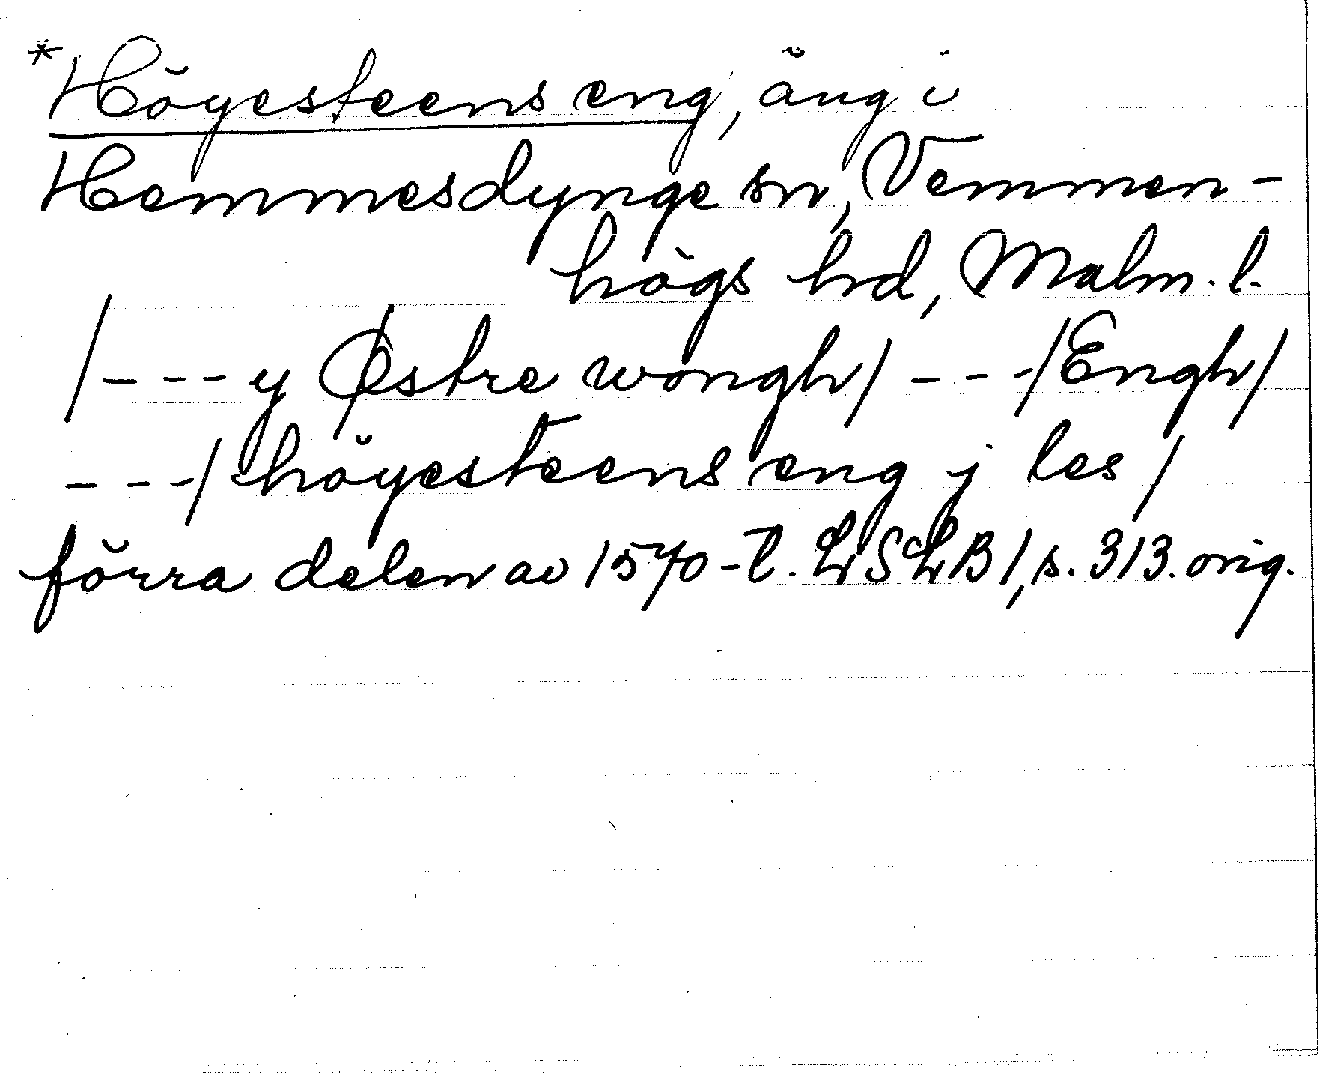 *Höyesteens eng, äng i
Hemmesdynge sn, Vemmen-
högs hd, Malm. l.
/--- y Østre wongh/ ---/Engh/
---/höyesteens eng j les/
förra delen av 1570-t. LSLB 1, s. 313. orig.